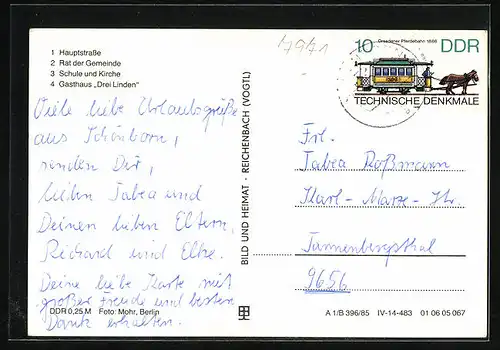 1 Hauptstraße
2 Rat der Gemeinde
3 Schule und Kirche
4 Gasthaus „Drei Linden"
Viele liebe Urlaubsgrüße
aus Schönborn,
senden Dir,
lieben Tabea und
Deinen lieben Eltern,
Richard und Elke.
Deine liebe Karte mit
großer Freude und besten
Dank erhalten.
DDR 0,25 M Foto: Mohr, Berlin
BILD UND HEIMAT · REICHENBACH (VOGTL)
7971
Dresdener Pferdebahn 1886
10 DDR
TECHNISCHE DENKMALE
Frl.
Tabea Roßmann
Karl-Marx-Str.
Tannenbergsthal
9656
A 1/B 396/85 IV-14-483 01 06 05 067